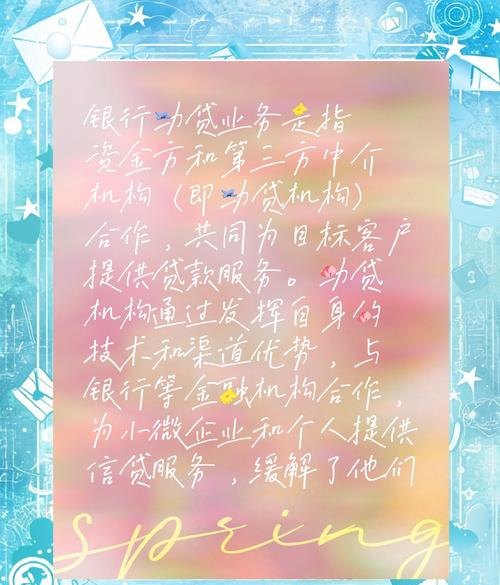 银行助贷业务是指
资金方和第三方中介
机构（即助贷机构）
合作，共同为目标客户
提供贷款服务。助贷
机构通过发挥自身的
技术和渠道优势，与
银行等金融机构合作，
为小微企业和个人提供
信贷服务，缓解了他们
spring